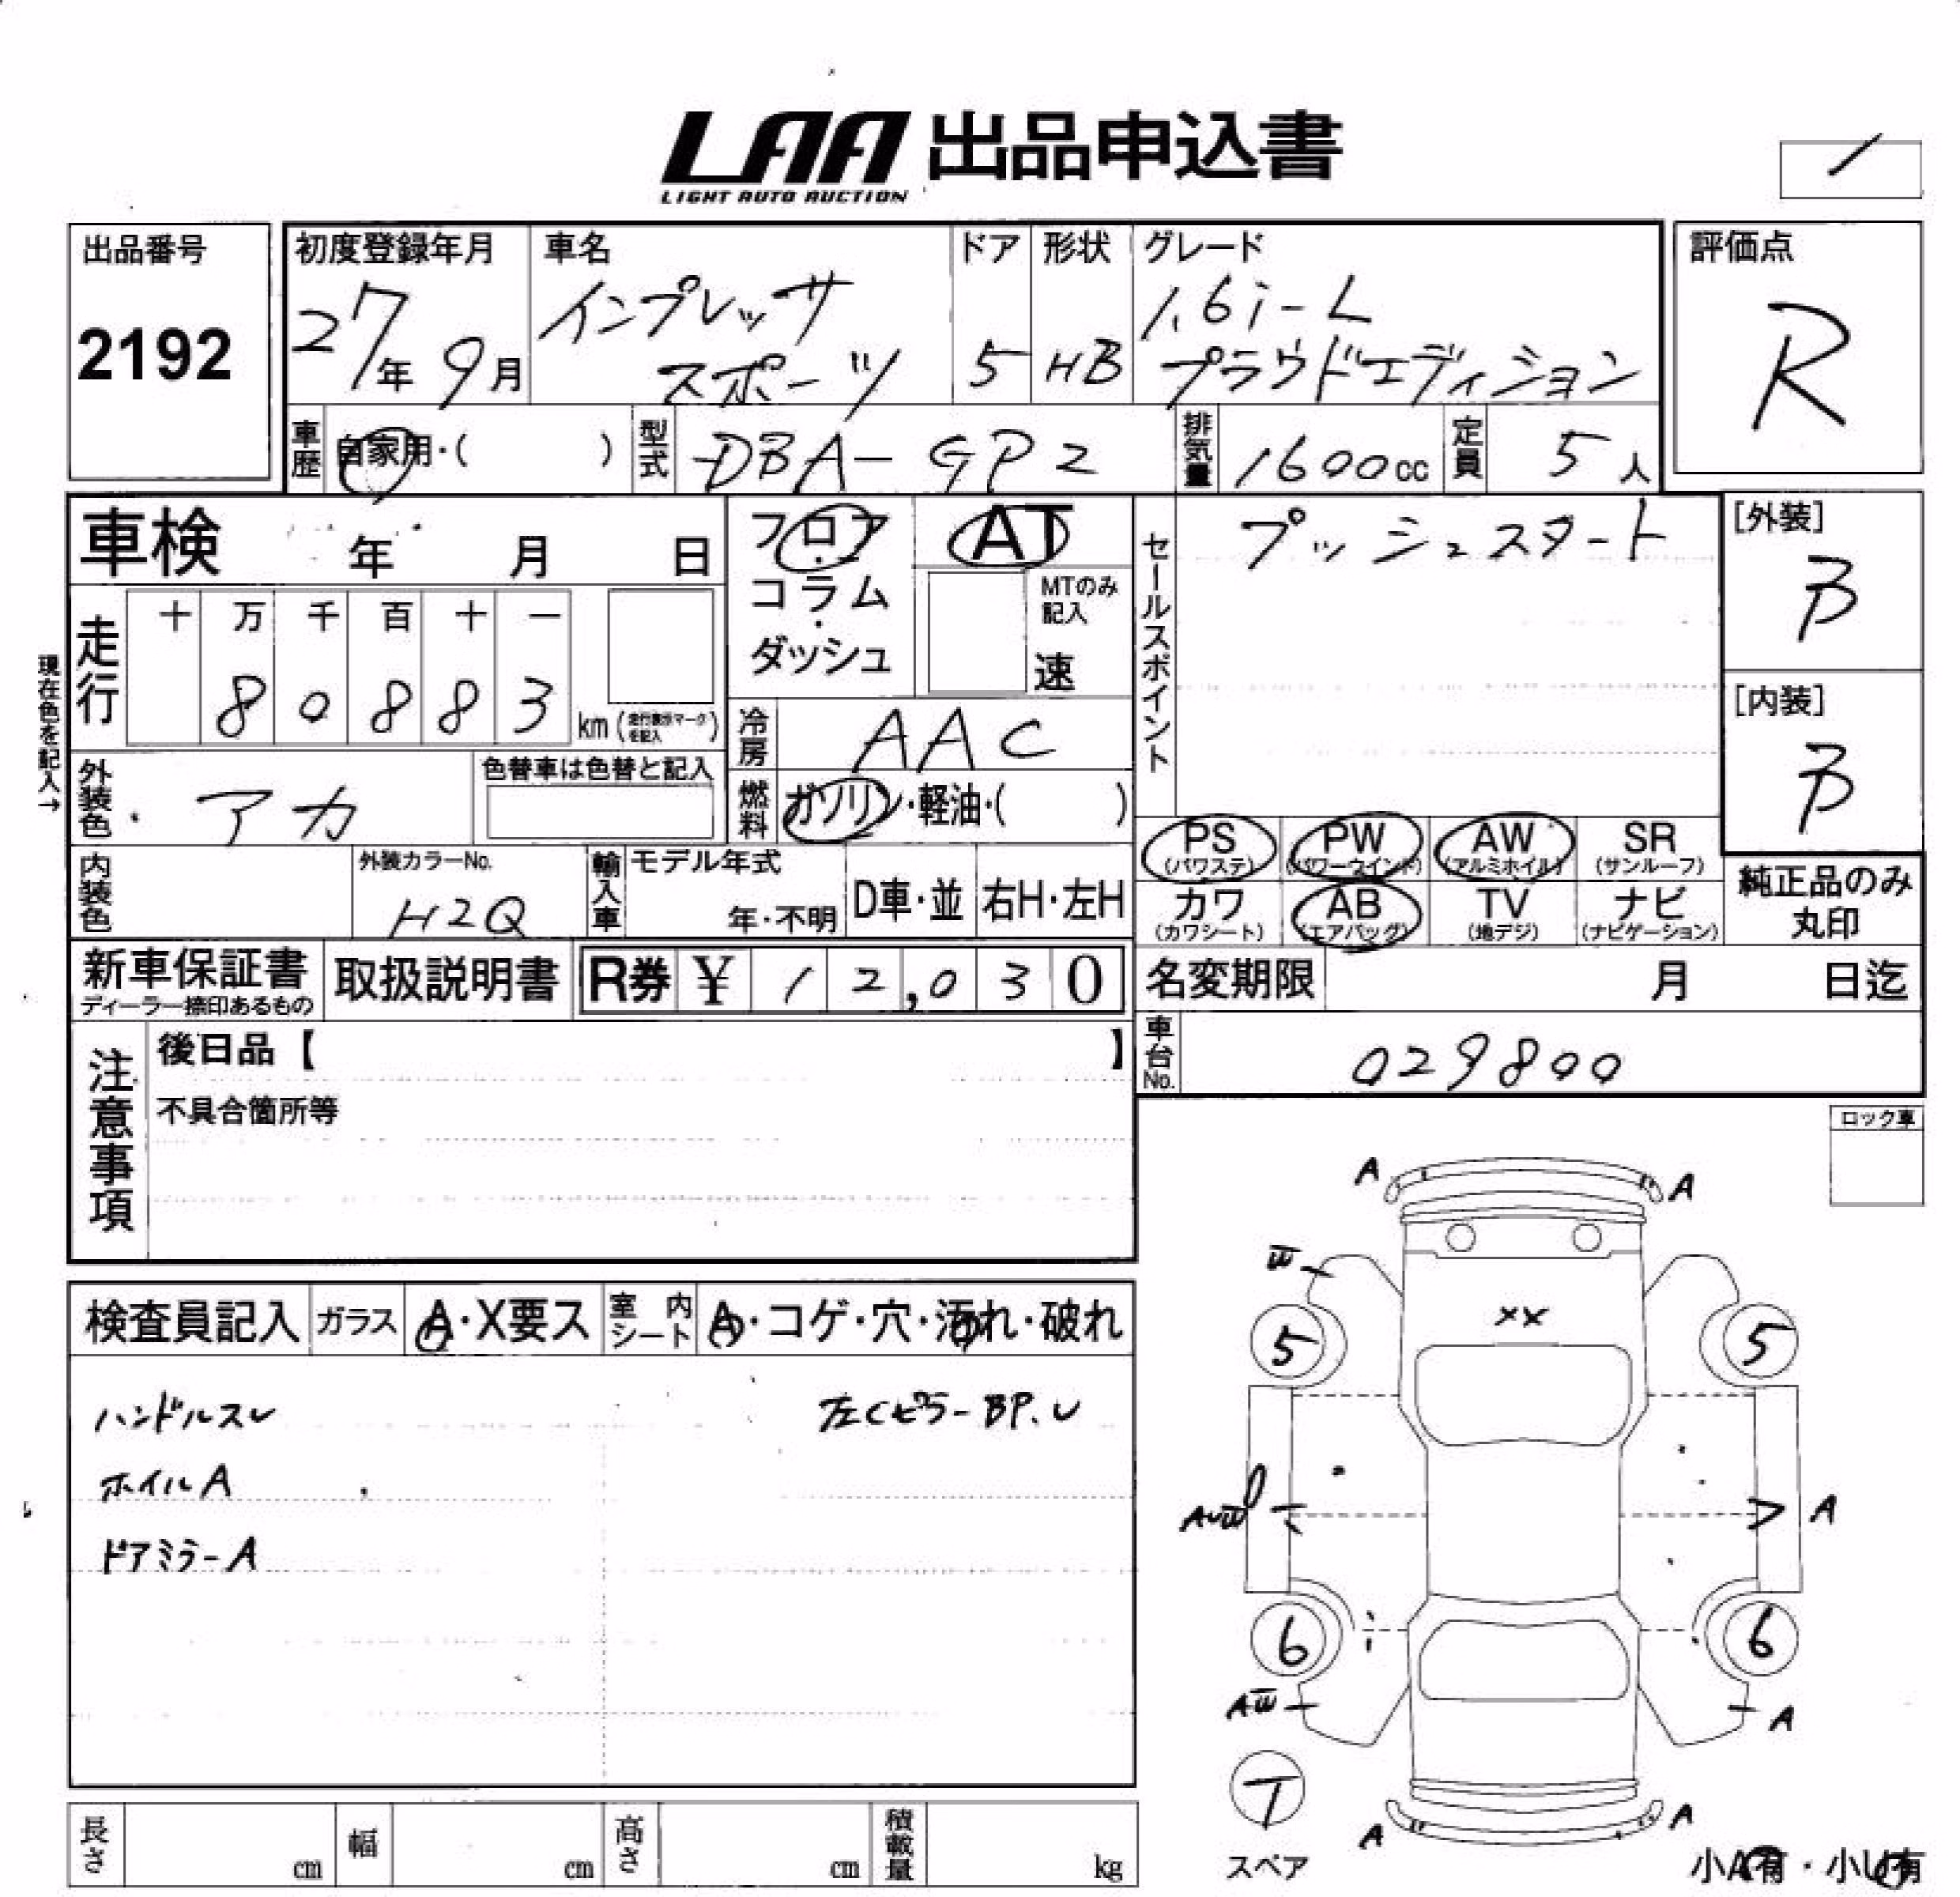 LAA 出品申込書
LIGHT AUTO AUCTION
出品番号
2192
初度登録年月
27年 9月
車名
インプレッサ
スポーツ
ドア
5
形状
HB
グレード
1.6i-L
プラウドエディション
評価点
R
車歴
自家用・( )
型式
DBA-GP2
排気量
1600cc
定員
5人
車検 年 月 日
フロア
・
コラム
・
ダッシュ
AT
MTのみ
記入
速
セールスポイント
プッシュスタート
[外装]
B
[内装]
B
現在色を記入→
走行
十 万 千 百 十 一
8 0 8 8 3
km (走行表示マークを記入)
冷房
AAC
燃料
ガソリン・軽油・( )
外装色
アカ
色替車は色替と記入
内装色
外装カラーNo.
H2Q
輸入車
モデル年式
年・不明
D車・並
右H・左H
PS
(パワステ)
PW
(パワーウインド)
AW
(アルミホイル)
SR
(サンルーフ)
カワ
(カワシート)
AB
(エアバッグ)
TV
(地デジ)
ナビ
(ナビゲーション)
純正品のみ
丸印
新車保証書
ディーラー捺印あるもの
取扱説明書
R券 ¥ 12,030
名変期限 月 日迄
車台No.
029800
注意事項
後日品【 】
不具合箇所等
ロック車
検査員記入
ガラス
A・X要ス
室内
シート
A・コゲ・穴・汚れ・破れ
ハンドルスレ
左Cピラー BP.U
ホイルA
ドアミラーA
A A
W
XX
5 5
A
6 6
AW A
T
スペア
A A
小A有・小U有
長さ cm
幅 cm
高さ cm
積載量 kg